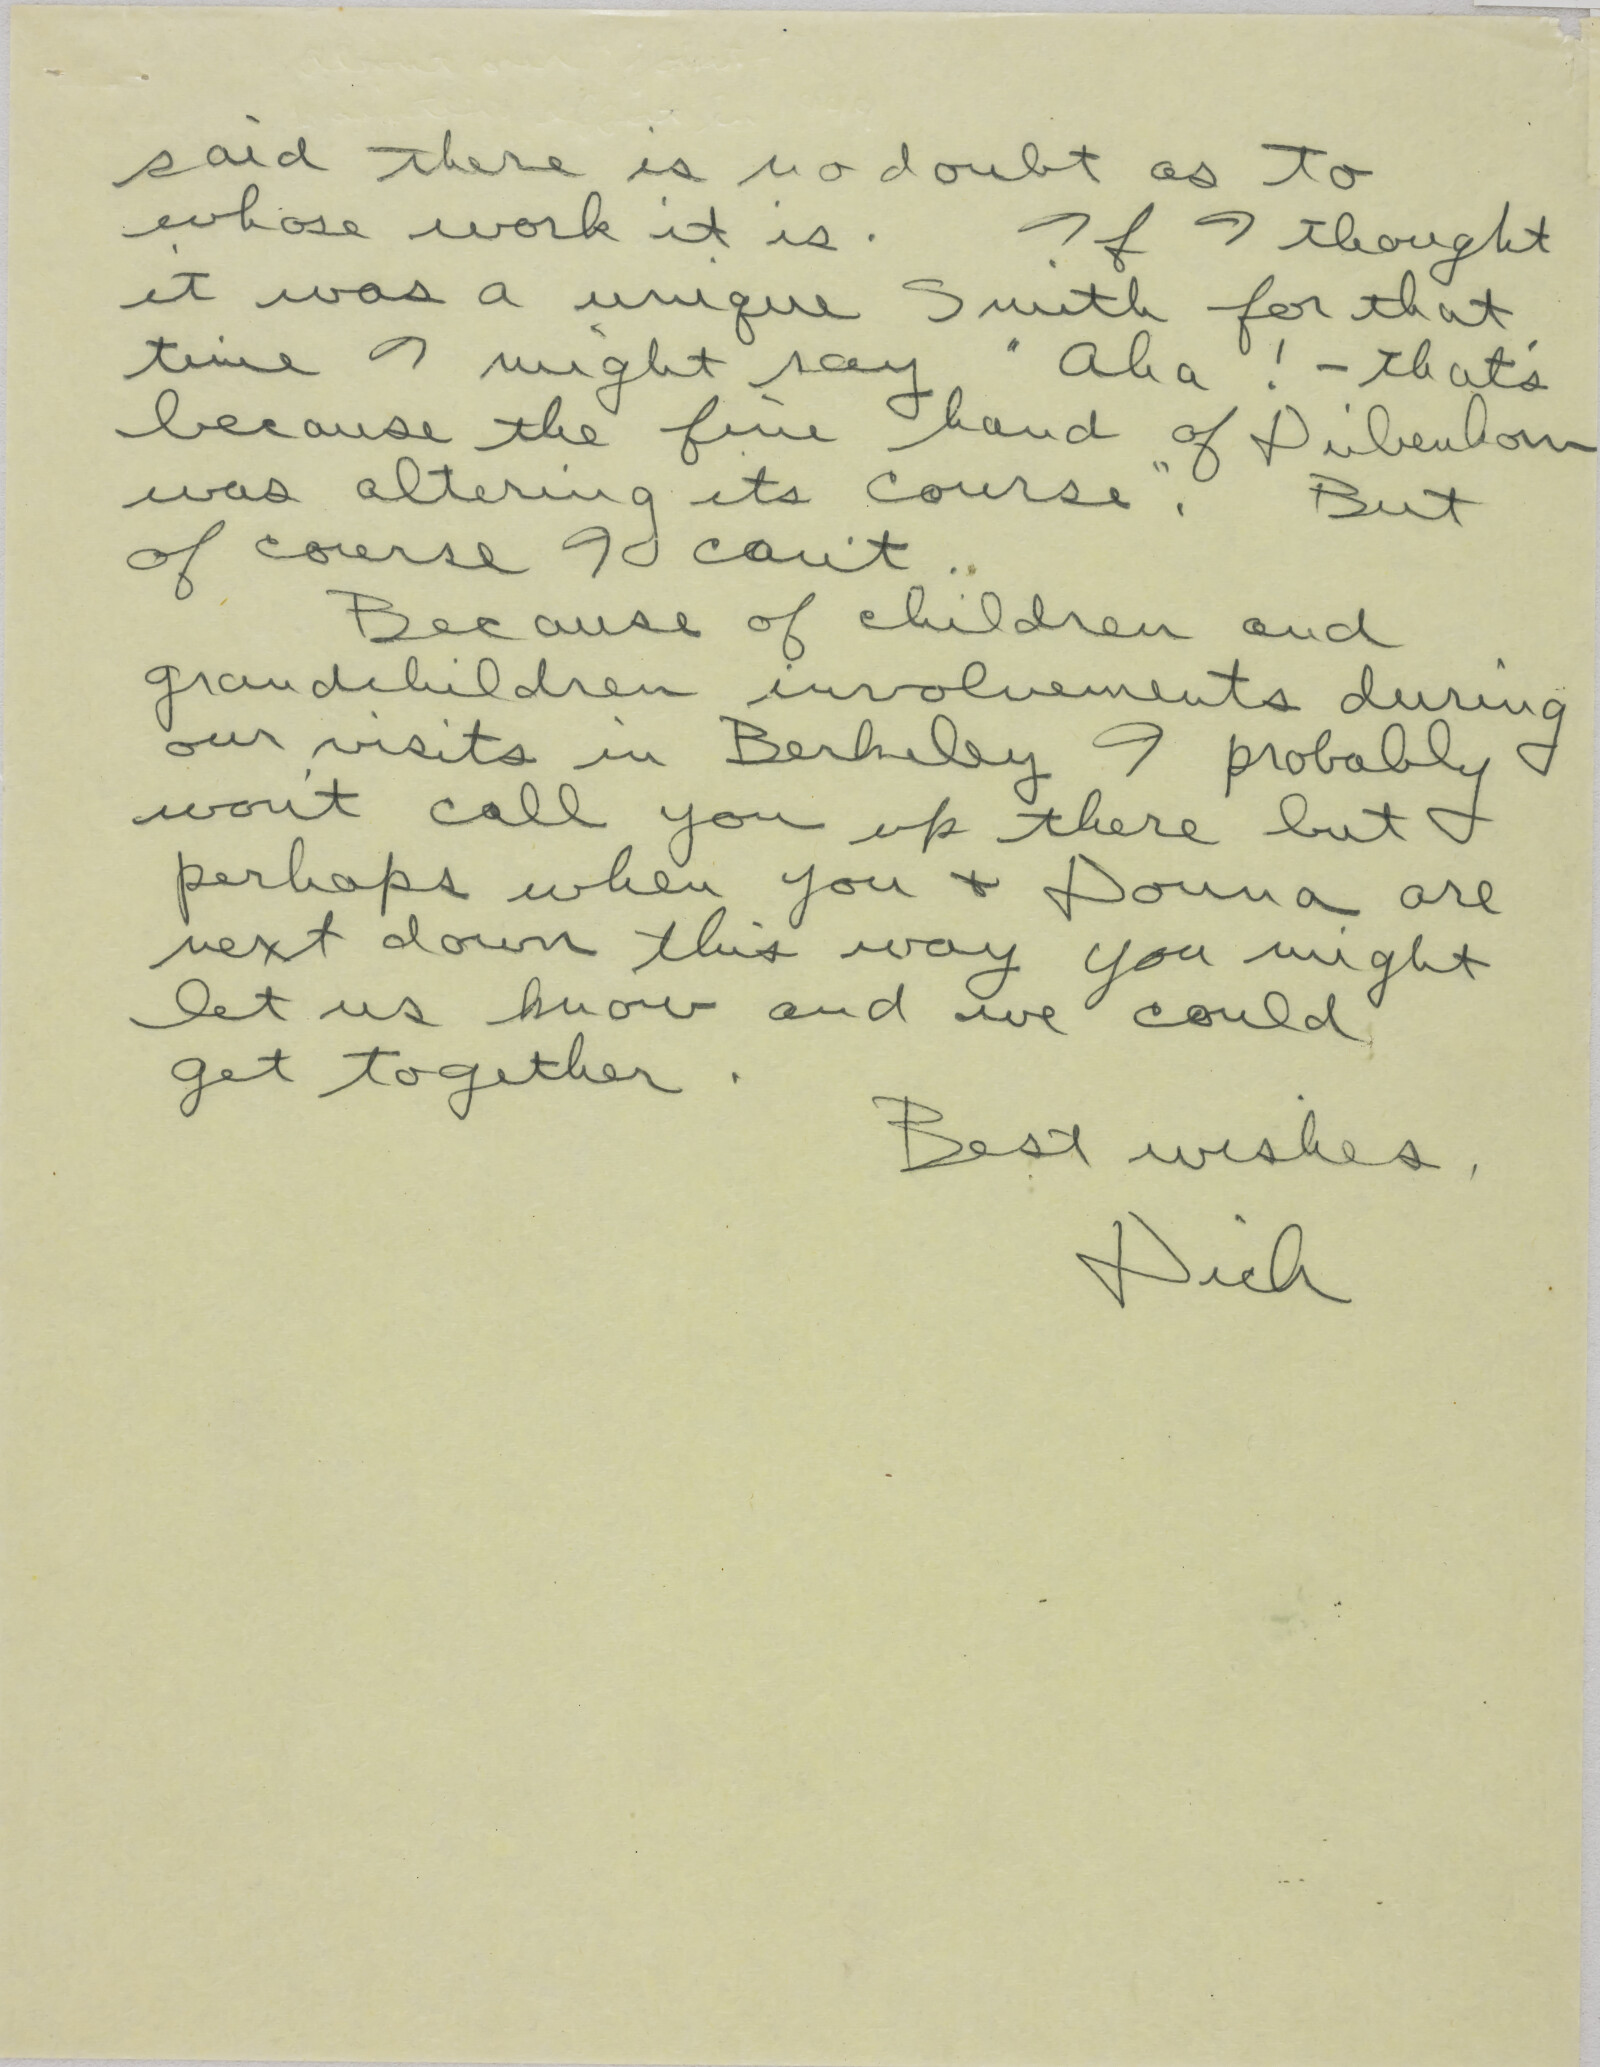 said there is no doubt as to
whose work it is. If I thought
it was a unique Smith for that
time I might say "Aha! - that's
because the fine hand of Diebenkorn
was altering its course". But
of course I can't.
Because of children and
grandchildren involvements during
our visits in Berkeley I probably
won't call you up there but
perhaps when you + Donna are
next down this way you might
let us know and we could
get together.
Best wishes,
Dick